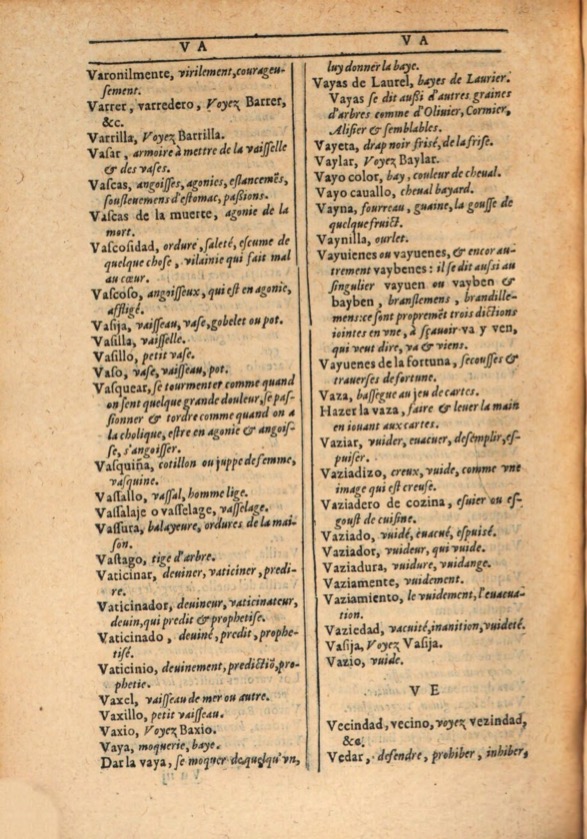 V A
Varonilmente, virilement, courageu-
sement.
Varrer, varredero, Voyez Barrer,
&c.
Varrilla, Voyez Barrilla.
Vasar, armoire à mettre de la vaisselle
& des vases.
Vascas, angoisses, agonies, eslancemẽs,
souslevemens d'estomac, passions.
Vascas de la muerte, agonie de la
mort.
Vascosidad, ordure, saleté, escume de
quelque chose, vilainie qui fait mal
au cœur.
Vascoso, angoisseux, qui est en agonie,
affligé.
Vasija, vaisseau, vase, gobelet ou pot.
Vasilla, vaisselle.
Vasillo, petit vase.
Vaso, vase, vaisseau, pot.
Vasquear, se tourmenter comme quand
on sent quelque grande douleur, se pas-
sionner & tordre comme quand on a
la cholique, estre en agonie & angois-
se, s'angoisser.
Vasquiña, cotillon ou juppe de femme,
vasquine.
Vassallo, vassal, homme lige.
Vassalaje o vasselage, vasselage.
Vassura, balayeure, ordures de la mai-
son.
Vastago, tige d'arbre.
Vaticinar, deuiner, vaticiner, predi-
re.
Vaticinador, deuineur, vaticinateur,
deuin, qui predit & prophetise.
Vaticinado, deuiné, predit, prophe-
tisé.
Vaticinio, deuinement, predictiõ, pro-
phetie.
Vaxel, vaisseau de mer ou autre.
Vaxillo, petit vaisseau.
Vaxio, Voyez Baxio.
Vaya, moquerie, baye.
Dar la vaya, se moquer de quelqu'vn,
V A
luy donner la baye.
Vayas de Laurel, bayes de Laurier.
Vayas se dit aussi d'autres graines
d'arbres comme d'Oliuier, Cormier,
Alisier & semblables.
Vayeta, drap noir frisé, de la frise.
Vaylar, Voyez Baylar.
Vayo color, bay, couleur de cheual.
Vayo cauallo, cheual bayard.
Vayna, fourreau, guaine, la gousse de
quelque fruict.
Vaynilla, ourlet.
Vayuienes ou vayuenes, & encor au-
trement vaybenes: il se dit aussi au
singulier vayuen ou vayben &
bayben, branslemens, brandille-
mens: ce sont propremẽt trois dictions
iointes en vne, à sçauoir va y ven,
qui veut dire, va & viens.
Vayuenes de la fortuna, secousses &
trauerses de fortune.
Vaza, bassegue au jeu de cartes.
Hazer la vaza, faire & leuer la main
en iouant aux cartes.
Vaziar, vuider, euacuer, desemplir, es-
puiser.
Vaziadizo, creux, vuide, comme vne
image qui est creuse.
Vaziadero de cozina, esuier ou es-
goust de cuisine.
Vaziado, vuidé, èuacué, espuisé.
Vaziador, vuideur, qui vuide.
Vaziadura, vuidure, vuidange.
Vaziamente, vuidement.
Vaziamiento, le vuidement, l'euacua-
tion.
Vaziedad, vacuité, inanition, vuideté.
Vasija, Voyez Vasija.
Vazio, vuide.
V E
Vecindad, vecino, voyez vezindad,
&c.
Vedar, defendre, prohiber, inhiber,